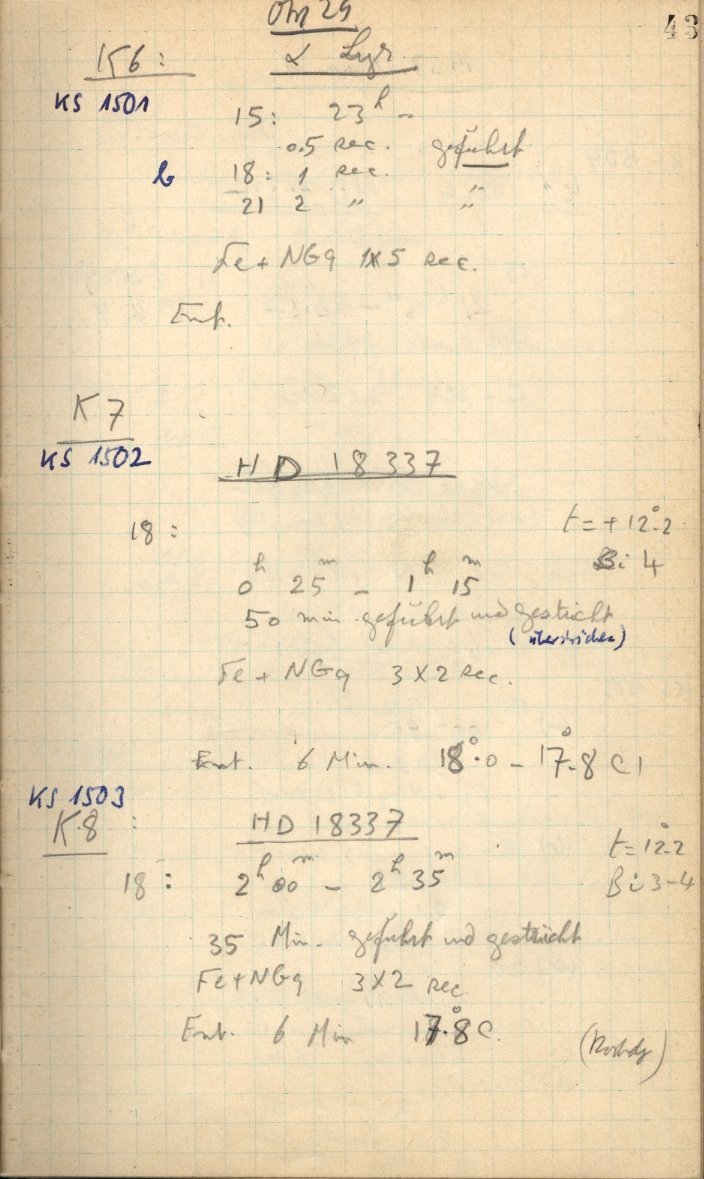 29
43
K6:
α Lyr.
KS 1501
15: 23h -
0.5 sec. geführt
b 18: 1 sec. "
21 2 " "
Fe + NGq 1x5 sec.
Ent.
K7
KS 1502
HD 18337
18: t = + 12°.2
Bi 4
0h 25m - 1h 15m
50 min. geführt und gestricht
(überstrichen)
Fe + NGq 3x2 sec.
Ent. 6 Min. 18°.0 - 17°.8 C
KS 1503
K8: HD 18337
t = 12°.2
18: 2h 00m - 2h 35m Bi 3-4
35 Min. geführt und gestricht
Fe + NGq 3x2 sec
Ent. 6 Min 17°.8 C.